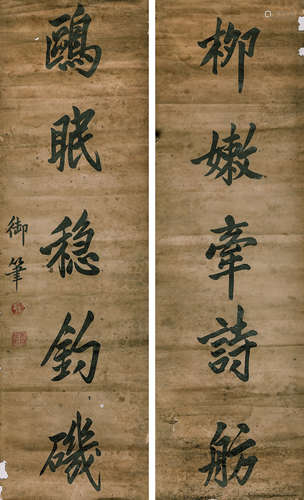 柳嫩牽詩舫
鷗眠穏釣磯
御筆